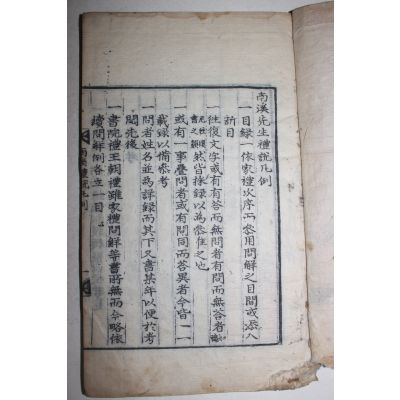 南溪先生禮說凡例
一目錄一依家禮次序而參用問解之目間或添入
新目
一往復文字或有有答而無問者有問而無答者
然皆採錄以為參推之也
一或有一事疊問者或有問同而答異者今皆一一
載錄以備參考
一問者姓名並為詳錄而其下又書某年以便於考
閱先後
一書院禮王朝禮雖家禮問解等書所無而今略依
續問解例各立一目
南溪禮說凡例
一